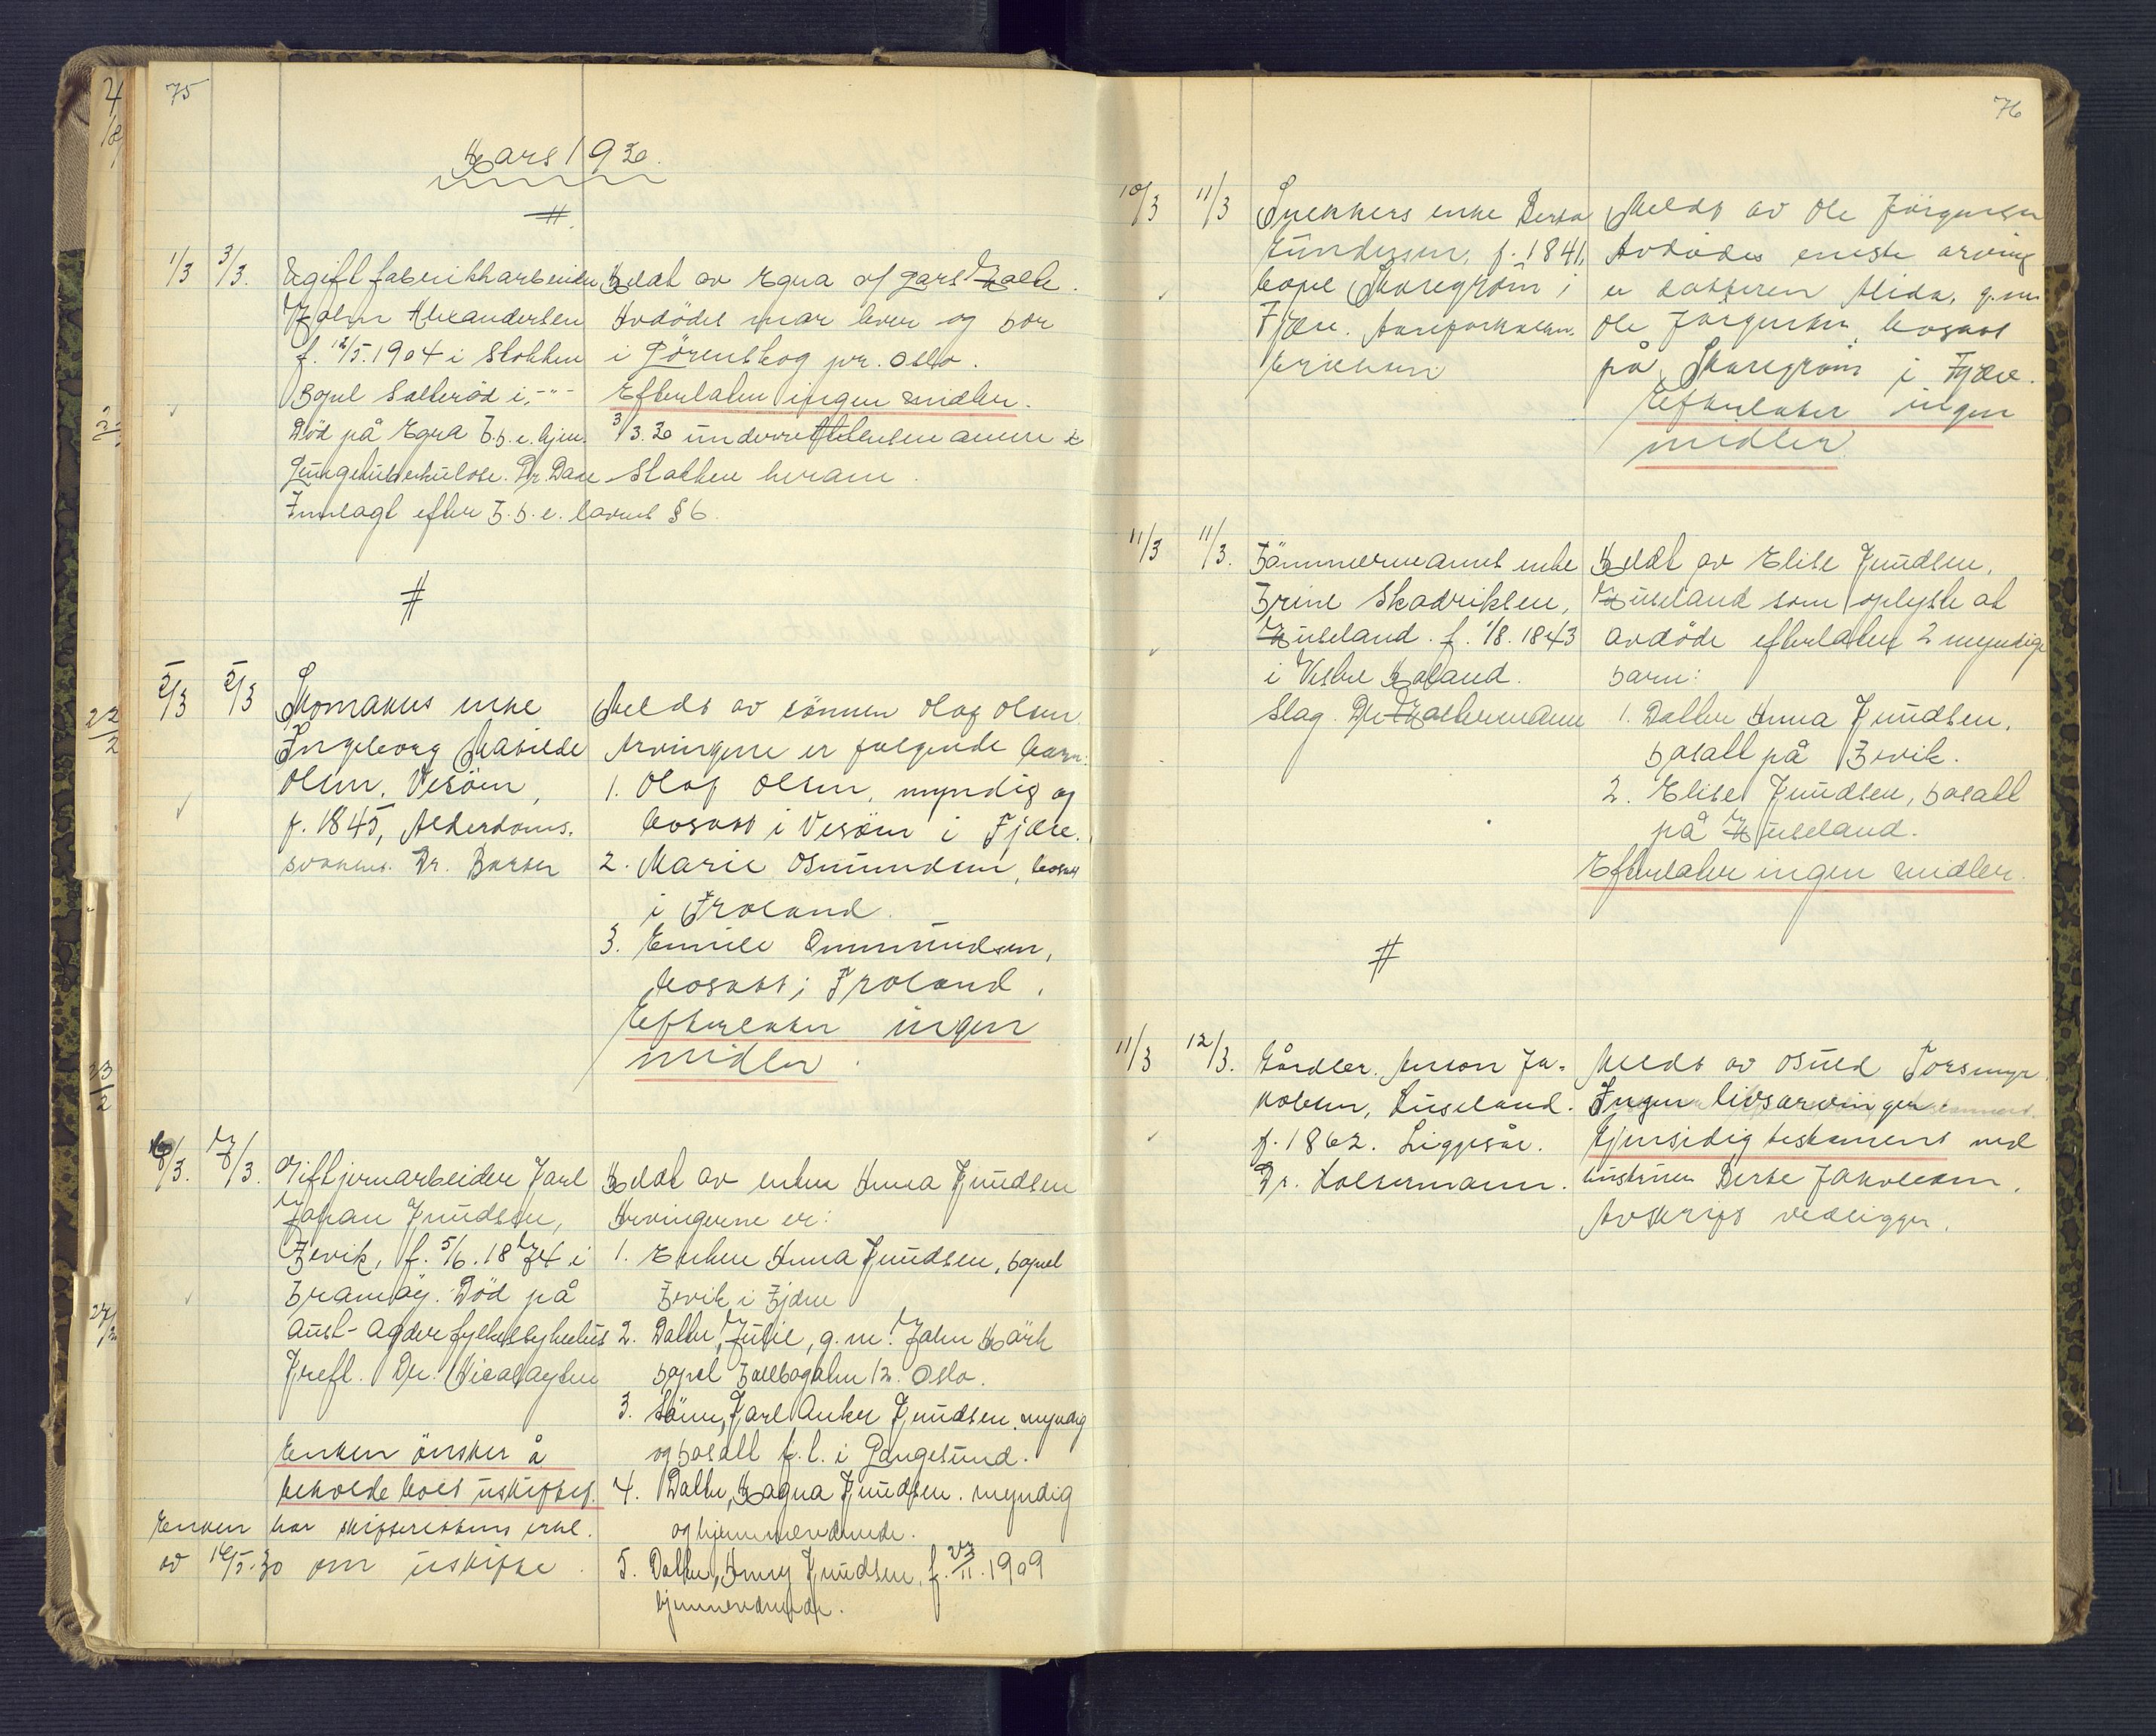 75
Mars 1930.
1/3 3/3.
Ugift fabrikkarbeider
John Alexandersen
f. 12/5. 1904 i Stokken
Bopel Salteröd i -"-
Död på Egra T.b.c. hjem.
Lungetuberkulose. Dr. Dane
Innlagt efter T.b.c. lovens § 6.
Meldt av Egra v/ Lars Holte.
Avdödes mor lever og bor
i Lörenskog pr. Oslo.
Efterlater ingen midler.
3/3.30 underrettet lensmannen i
Stokken herom.
5/3 5/3
Skomakers enke
Ingeborg Matilde
Olsen, Vesöen,
f. 1845, Alderdoms-
svakhet. Dr. Barber
Meldt av sönnen Olaf Olsen
Arvingene er fölgende barn:
1. Olaf Olsen, myndig og
bosatt i Vesöen i Fjære.
2. Marie Osmundsen, bosatt
i Froland.
3. Emilie Ommundsen,
bosatt i Froland.
Efterlater ingen
midler.
6/3. 7/3.
Gift jernarbeider Karl
Johan Knudsen,
Fevik, f. 5/6. 1874 i
Tromöy. Död på
Aust-Agder fylkessykehus
Kreft. Dr. Nicolaysen
Enken önsker å
beholde boet uskiftet.
Enken har skifterettens erkl.
av 16/5.30 om uskifte.
Meldt av enken Anna Knudsen
Arvingerne er:
1. Enken Anna Knudsen, bopel
Fevik i Fjære
2. Datter, Julie, g.m. John Mörk
bopel Tollbogaten 12. Oslo.
3. Sönn, Karl Anker Knudsen. myndig
og bosatt f.t. i Langesund.
4. Datter, Magna Knudsen. myndig
og hjemmeværende.
5. Datter, Anny Knudsen, f. 23/11. 1909
hjemmeværende.
76
10/3 11/3
Snekkers enke Berta
Gundersen, f. 1841,
bopel Skaregröm i
Fjære.
Meldt av Ole Jörgensen
Avdödes eneste arving
er datteren Alida, g.m.
Ole Jörgensen, bosatt
på Skaregröm i Fjære.
Efterlater ingen
midler
11/3 11/3.
Tömmermanns enke
Trine Skadriksen,
Huseland. f. 1/8. 1843
i Vestre Moland.
Slag. Dr. Holtermann
Meldt av Elise Knudsen,
Huseland som oplyste at
avdöde efterlater 2 myndige
barn:
1. Datter Anna Knudsen,
bosatt på Fevik.
2. Elise Knudsen, bosatt
på Huseland.
Efterlater ingen midler.
11/3 12/3.
Gårdbr. Anton Ja-
kobsen, Huseland.
f. 1862. Liggesår.
Dr. Holtermann.
Meldt av Osuld Torsmyr
Ingen livsarvinger
Gjensidig testament med
hustruen Berte Jakobsen.
Avskrift vedligger.